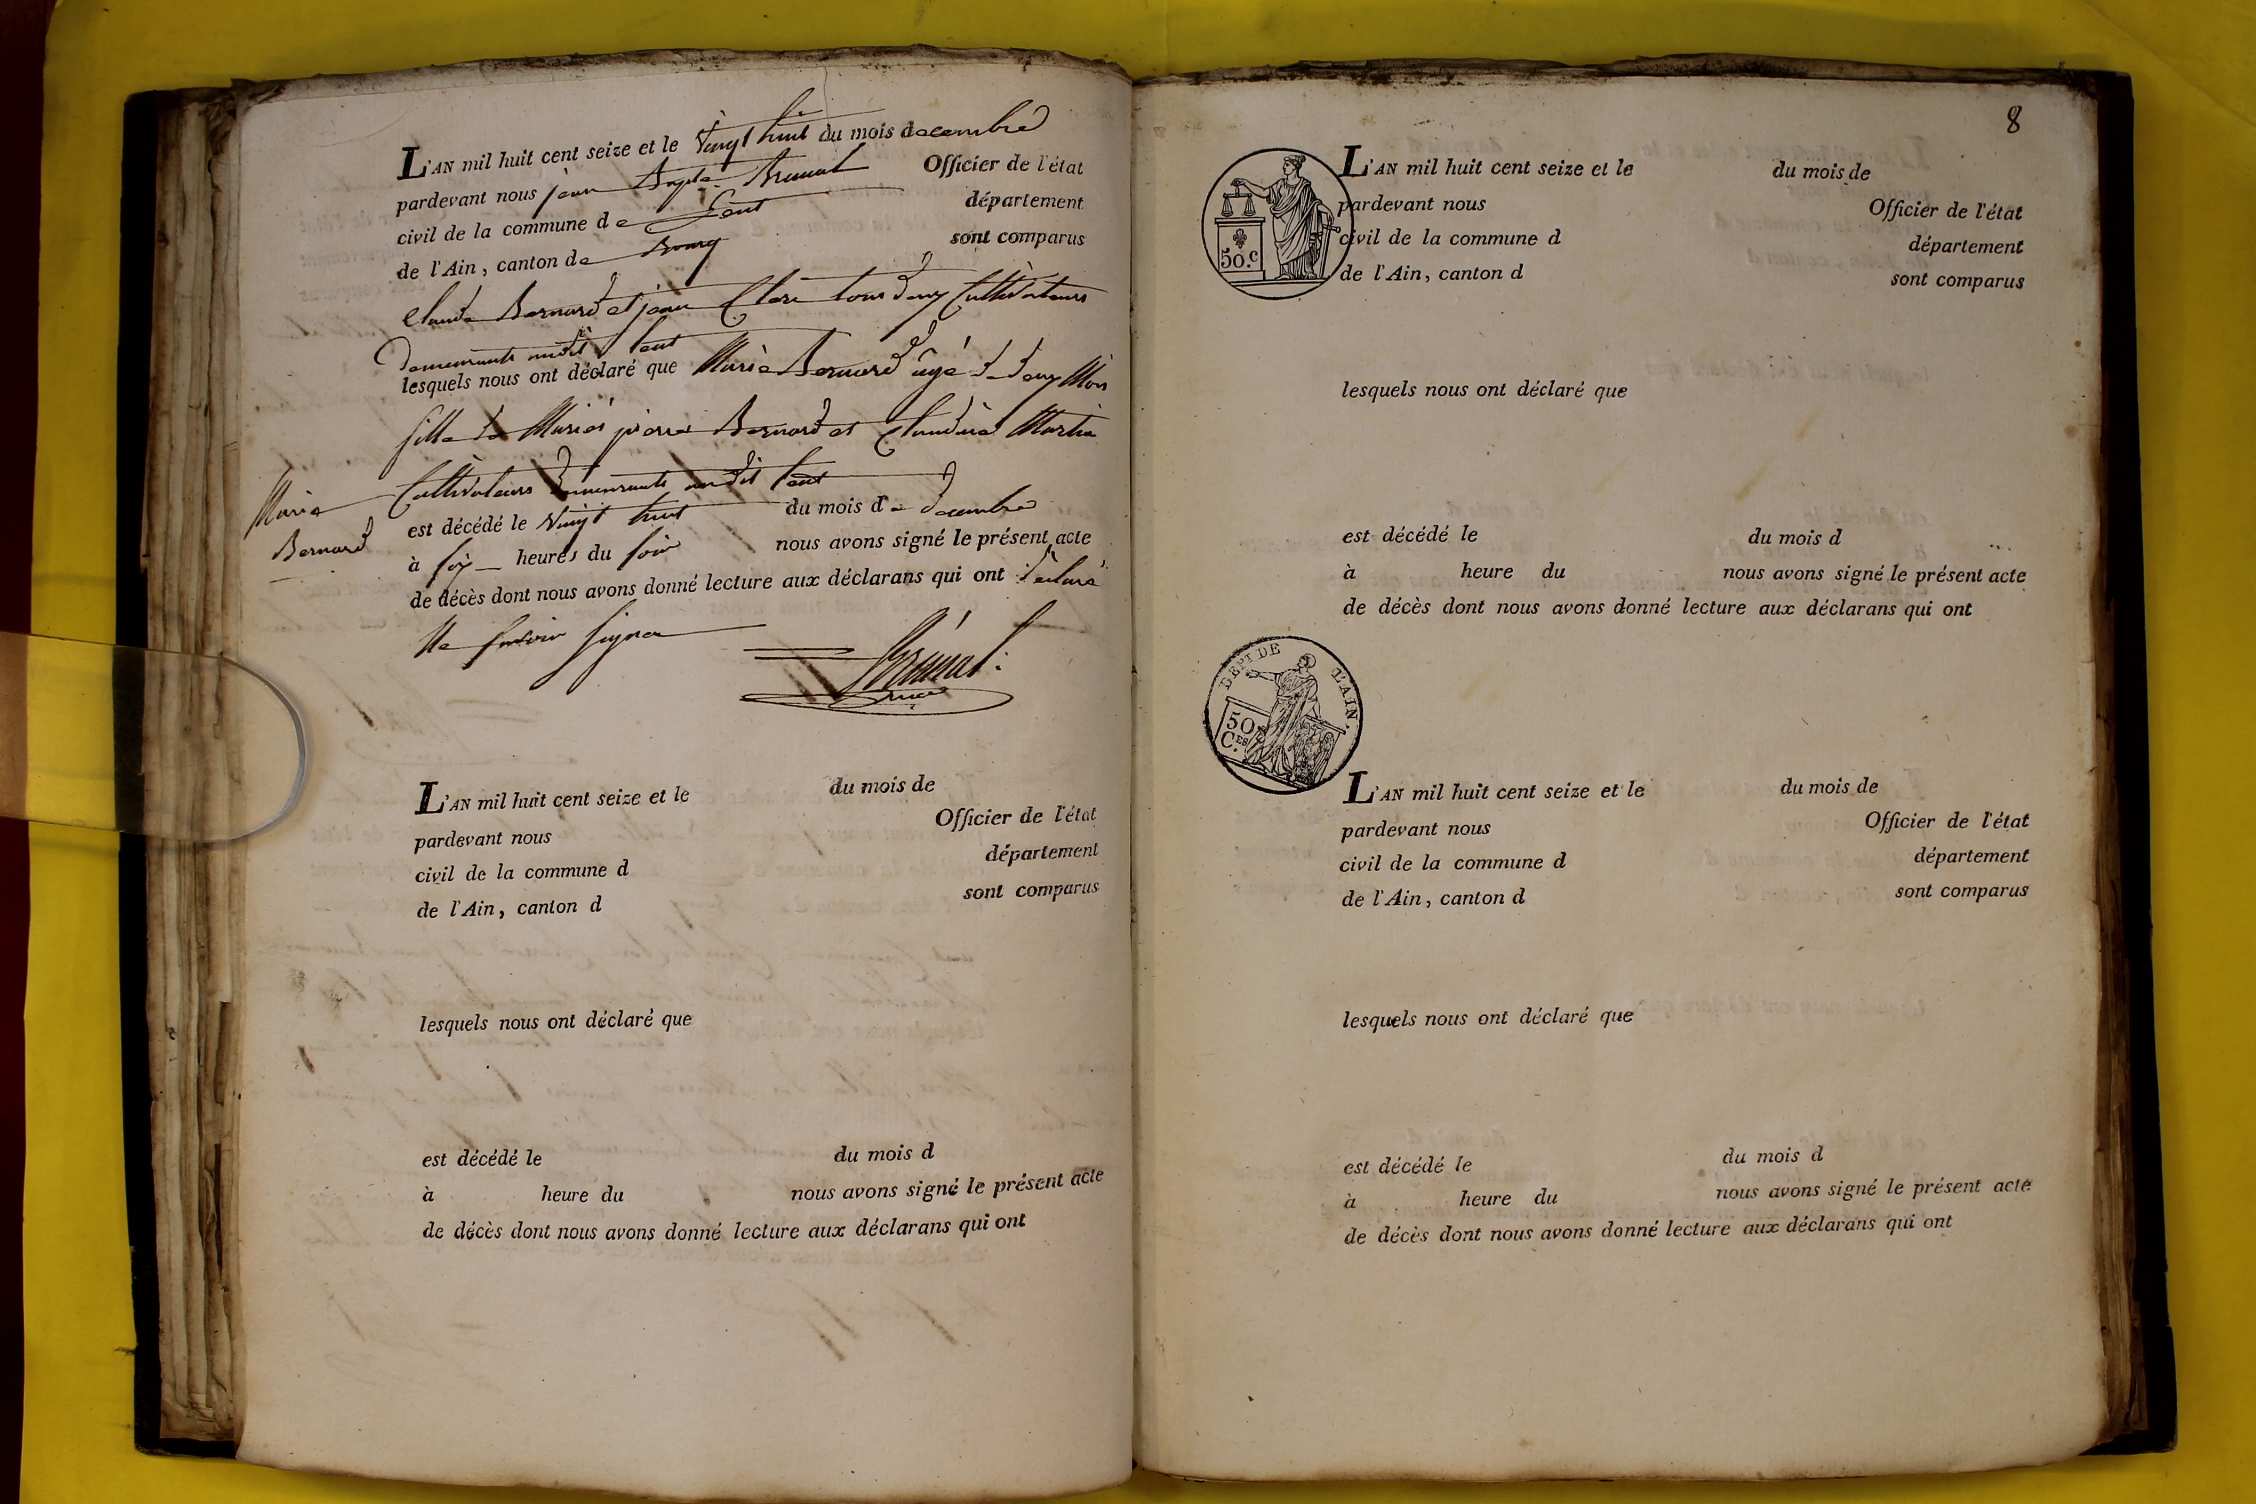 L'AN mil huit cent seize et le vingt huit du mois decembre
pardevant nous jean Bapte. Brunat Officier de l'état
civil de la commune de Lent département
de l'Ain, canton de Bourg sont comparus
claude Bernard et jean Clere tous deux Cultivateurs
demeurants audit Lent
lesquels nous ont déclaré que Marie Bernard âgé de deux Mois
fille de Mariés pierre Bernard et Claudine Martin
Cultivateurs demeurants audit Lent
Marie
Bernard
est décédé le vingt huit du mois de decembre
à six heures du soir nous avons signé le présent acte
de décès dont nous avons donné lecture aux déclarans qui ont déclaré
Ne savoir signer
Brunat
L'AN mil huit cent seize et le du mois de
pardevant nous Officier de l'état
civil de la commune d département
de l'Ain, canton d sont comparus
lesquels nous ont déclaré que
est décédé le du mois d
à heure du nous avons signé le présent acte
de décès dont nous avons donné lecture aux déclarans qui ont
8
50.c
L'AN mil huit cent seize et le du mois de
pardevant nous Officier de l'état
civil de la commune d département
de l'Ain, canton d sont comparus
lesquels nous ont déclaré que
est décédé le du mois d
à heure du nous avons signé le présent acte
de décès dont nous avons donné lecture aux déclarans qui ont
DEPT. DE L'AIN.
50
CES.
L'AN mil huit cent seize et le du mois de
pardevant nous Officier de l'état
civil de la commune d département
de l'Ain, canton d sont comparus
lesquels nous ont déclaré que
est décédé le du mois d
à heure du nous avons signé le présent acte
de décès dont nous avons donné lecture aux déclarans qui ont